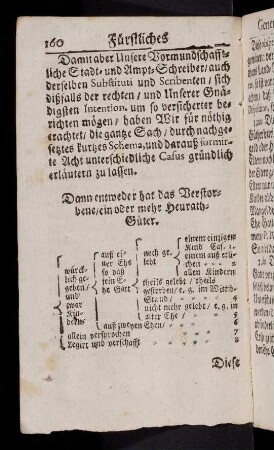 160 Fürstliches
Damit aber Unsere Vormundschafft-
liche Stadt- und Ampt-Schreiber/ auch
derselben Substituti und Scribenten / sich
dißfalls der rechten / und Unserer Gnä-
digsten Intention, um so versicherter be-
richten mögen / haben Wir für nöthig
erachtet / die gantze Sach / durch nachge-
setztes kurtzes Schema, und darauß formir-
te Acht unterschiedliche Casus gründlich
erläutern zu lassen.
Dann entweder hat das Verstor-
bene / ein oder mehr Heurath-
Güter.
einem einzigen
Kind Cas. 1
auß ei-
ner Ehe
so daß
sein E-
he Gatt
noch ge-
lebt /
einem auß etli-
chen - 2
allen Kindern
würck-
lich ge-
geben /
und/
zwar
Kin-
dern
theils gelebt / theils
gestorben / e. g. im Wittib-
Stand /
nicht mehr gelebt / e. g. in
alter Ehe / 5
auß zweyen Ehen / 6
allein versprochen 7
Legirt und verschafft 8
Diese